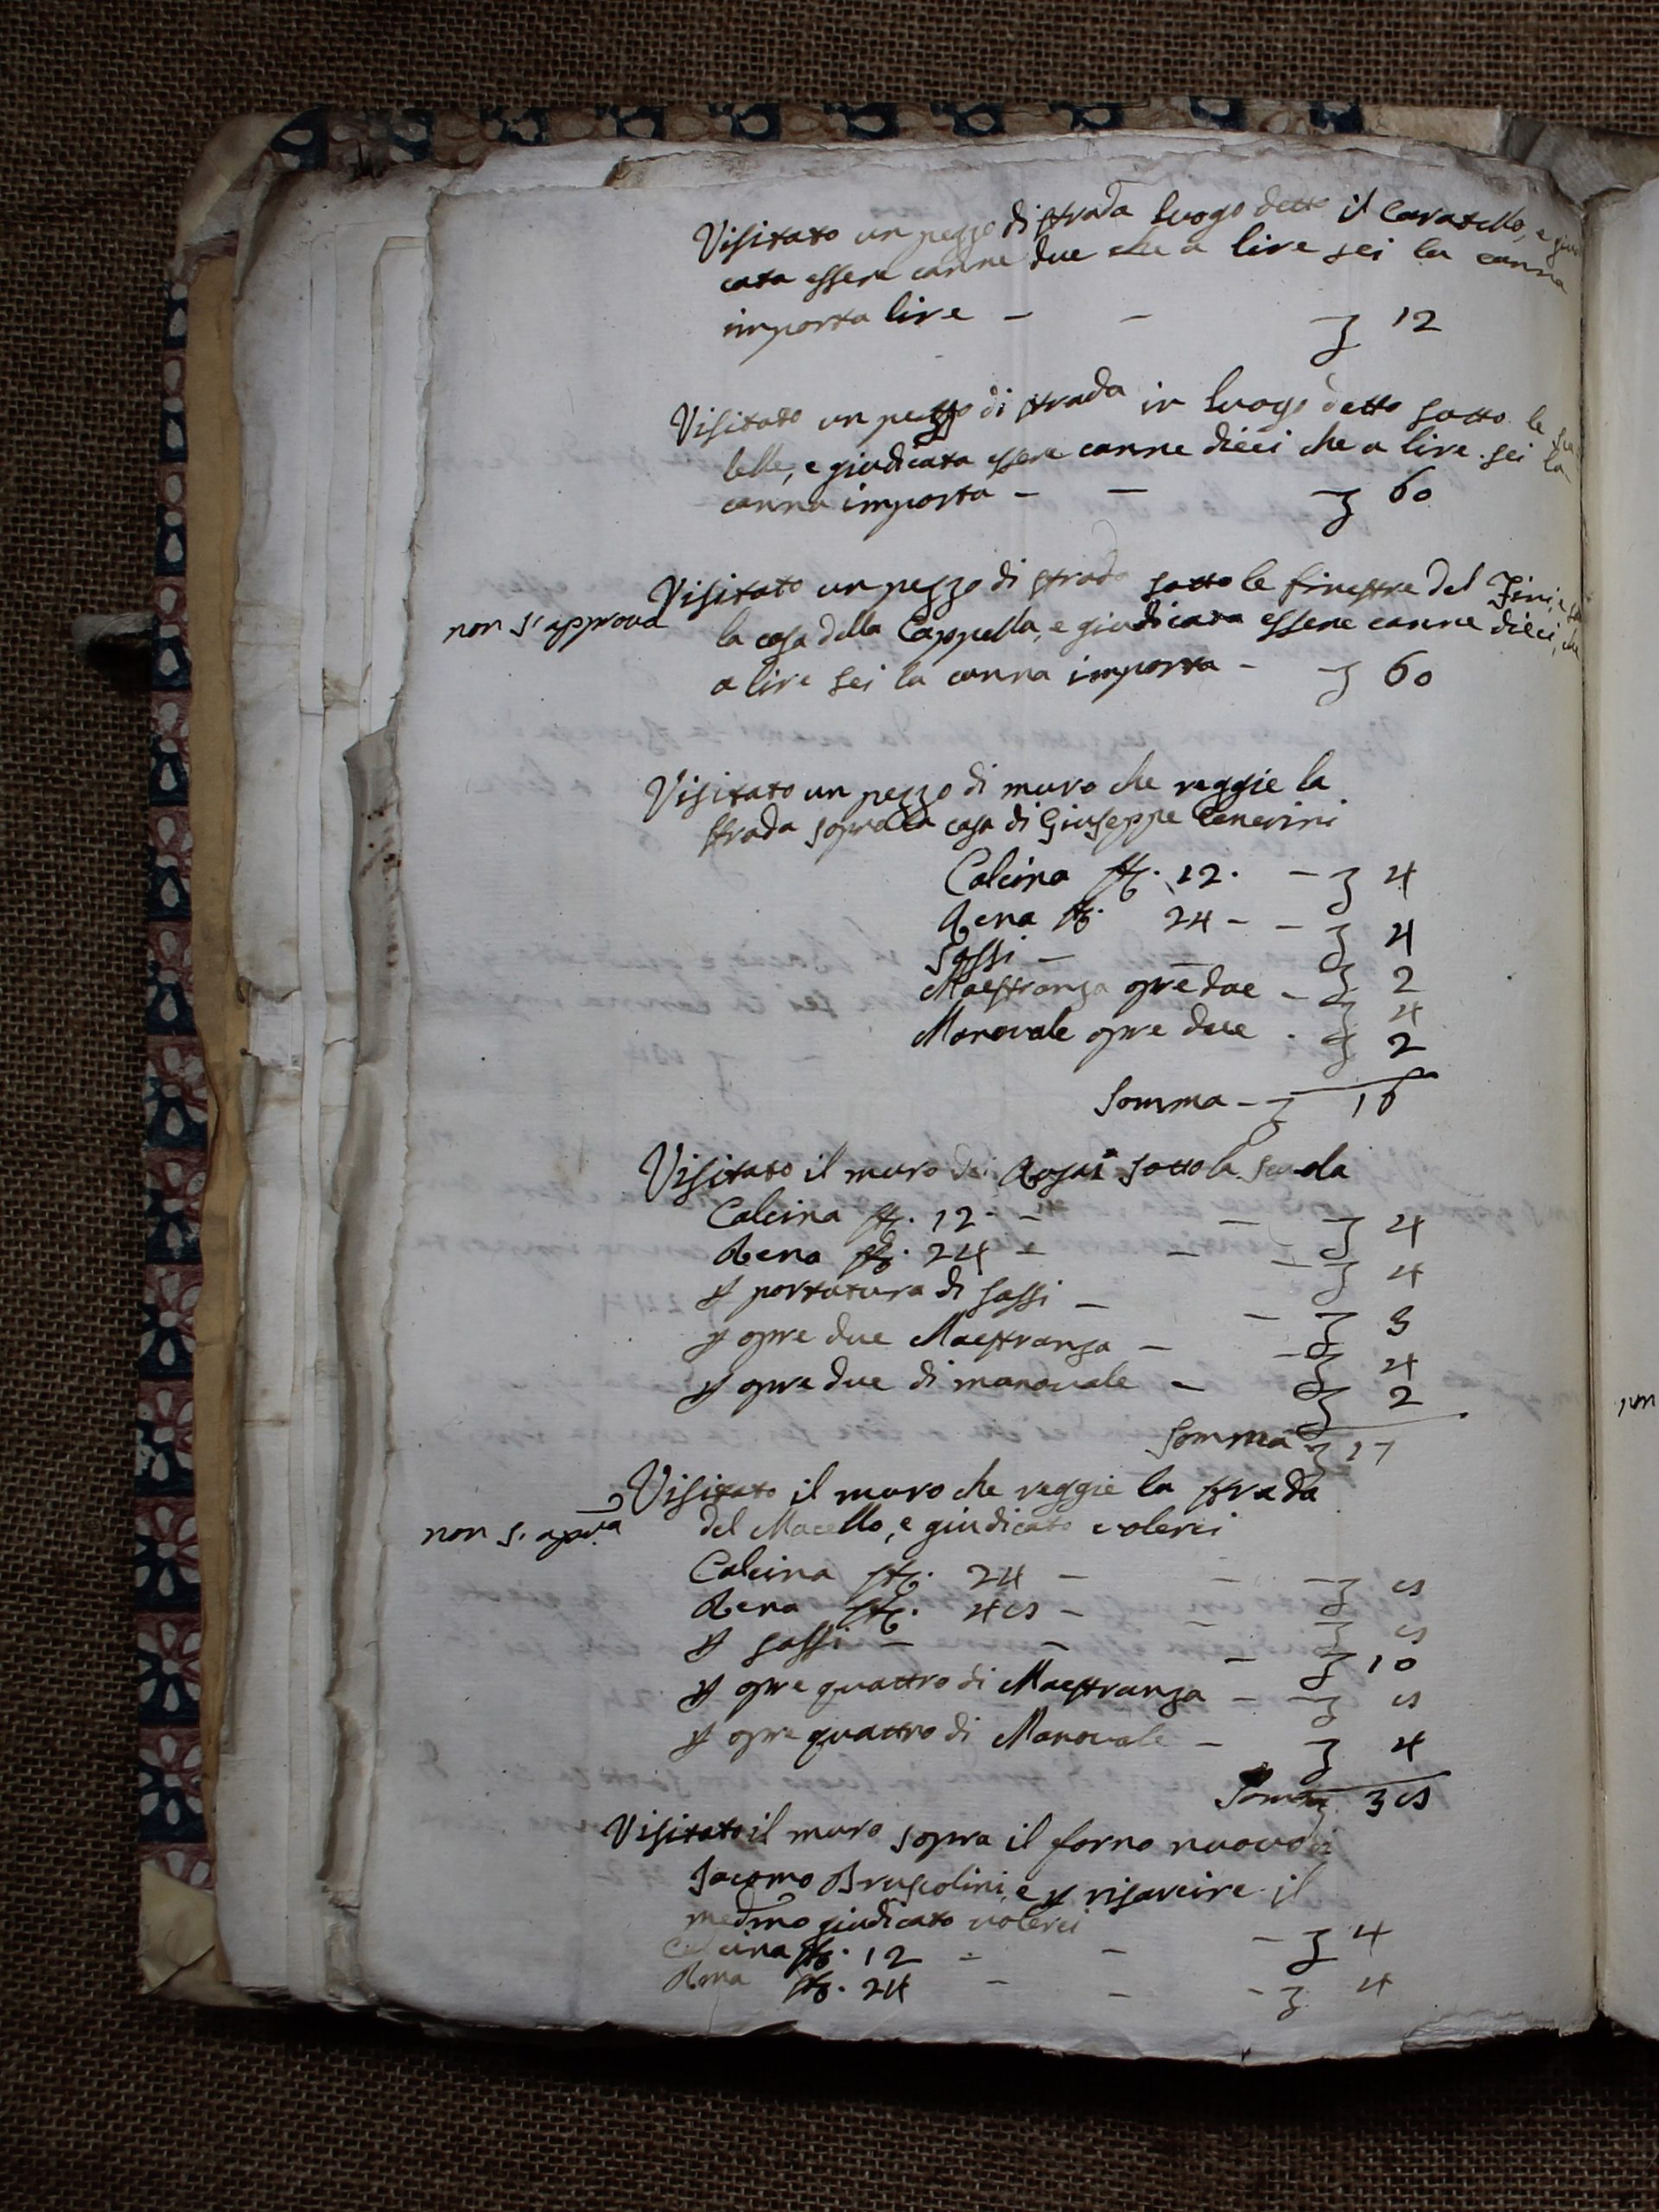 Visitato un pezzo di strada luogo detto il Caratello, e giudi
cata essere canne due che a lire sei la canna
importa lire - - ʒ 12
Visitato un pezzo di strada in luogo detto sotto le sca
lelle, e giudicata essere canne dieci che a lire sei la
canna importa - - ʒ 60
non s'approva
Visitato un pezzo di strada sotto le finestre del Fini, e
la casa della Cappella, e giudicata essere canne dieci, che
a lire sei la canna importa - ʒ 60
Visitato un pezzo di muro che reggie la
strada sopra la casa di Giuseppe Cenerini
Calcina st. 12. - ʒ 4
Rena st. 24 - - ʒ 4
Sassi - - ʒ 2
Maestranza opre due - ʒ 4
Manovale opre due - ʒ 2
Somma - ʒ 16
Visitato il muro dei Rosai sotto la scuola
Calcina st. 12 - - ʒ 4
Rena st. 24 - - - ʒ 4
p portatura di sassi - - ʒ 3
p opre due Maestranza - - ʒ 4
p opre due di manovale - ʒ 2
Somma ʒ 17
non s. ap.va
Visitato il muro che reggie la strada
del Macello, e giudicato volerci
Calcina st. 24 - - - ʒ 8
Rena st. 48 - - ʒ 8
p sassi - - - ʒ 10
p opre quattro di Maestranza - - ʒ 8
p opre quattro di Manovale - ʒ 4
Somma ʒ 38
Visitato il muro sopra il forno nuovo di
Iacomo Bruscolini, e p risarcire il
medmo giudicato volerci
Calcina st. 12 - - - ʒ 4
Rena st. 24 - - - ʒ 4